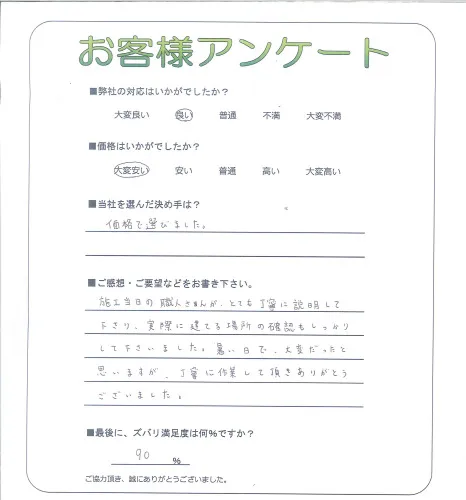 お客様アンケート
■弊社の対応はいかがでしたか？
大変良い 良い 普通 不満 大変不満
■価格はいかがでしたか？
大変安い 安い 普通 高い 大変高い
■当社を選んだ決め手は？
価格で選びました。
■ご感想・ご要望などをお書き下さい。
施工当日の職人さんが、とても丁寧に説明して
下さり、実際に建てる場所の確認もしっかり
して下さいました。暑い日で、大変だったと
思いますが、丁寧に作業して頂きありがとう
ございました。
■最後に、ズバリ満足度は何％ですか？
90 %
ご協力頂き、誠にありがとうございました。